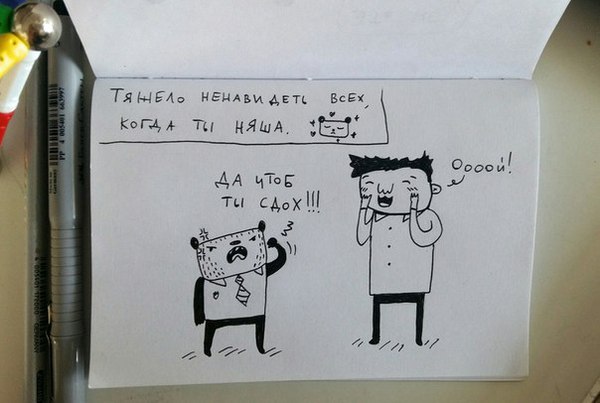 Тяжело ненавидеть всех,
когда ты няша.
Да чтоб
ты сдох!!!
Ооооой!